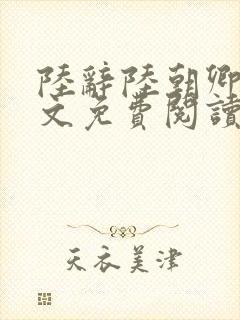 陸辭陸朝卿
文免費閱讀
天衣美津